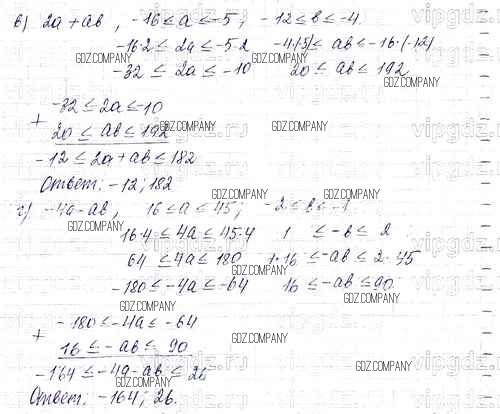 в) 2a + ab , -16 ≤ a ≤ -5 ; -12 ≤ b ≤ -4.
-16·2 ≤ 2a ≤ -5·2 -4·(-5) ≤ ab ≤ -16·(-12)
-32 ≤ 2a ≤ -10 20 ≤ ab ≤ 192
-32 ≤ 2a ≤ -10
+
20 ≤ ab ≤ 192
-12 ≤ 2a + ab ≤ 182
Ответ: -12 ; 182
г) -4a - ab , 16 ≤ a ≤ 45 ; -2 ≤ b ≤ -1
16·4 ≤ 4a ≤ 45·4 1 ≤ -b ≤ 2
64 ≤ 4a ≤ 180 1·16 ≤ -ab ≤ 2·45
-180 ≤ -4a ≤ -64 16 ≤ -ab ≤ 90
-180 ≤ -4a ≤ -64
+
16 ≤ -ab ≤ 90
-164 ≤ -4a - ab ≤ 26
Ответ: -164 ; 26.
GDZ.COMPANY
vipgdz.ru